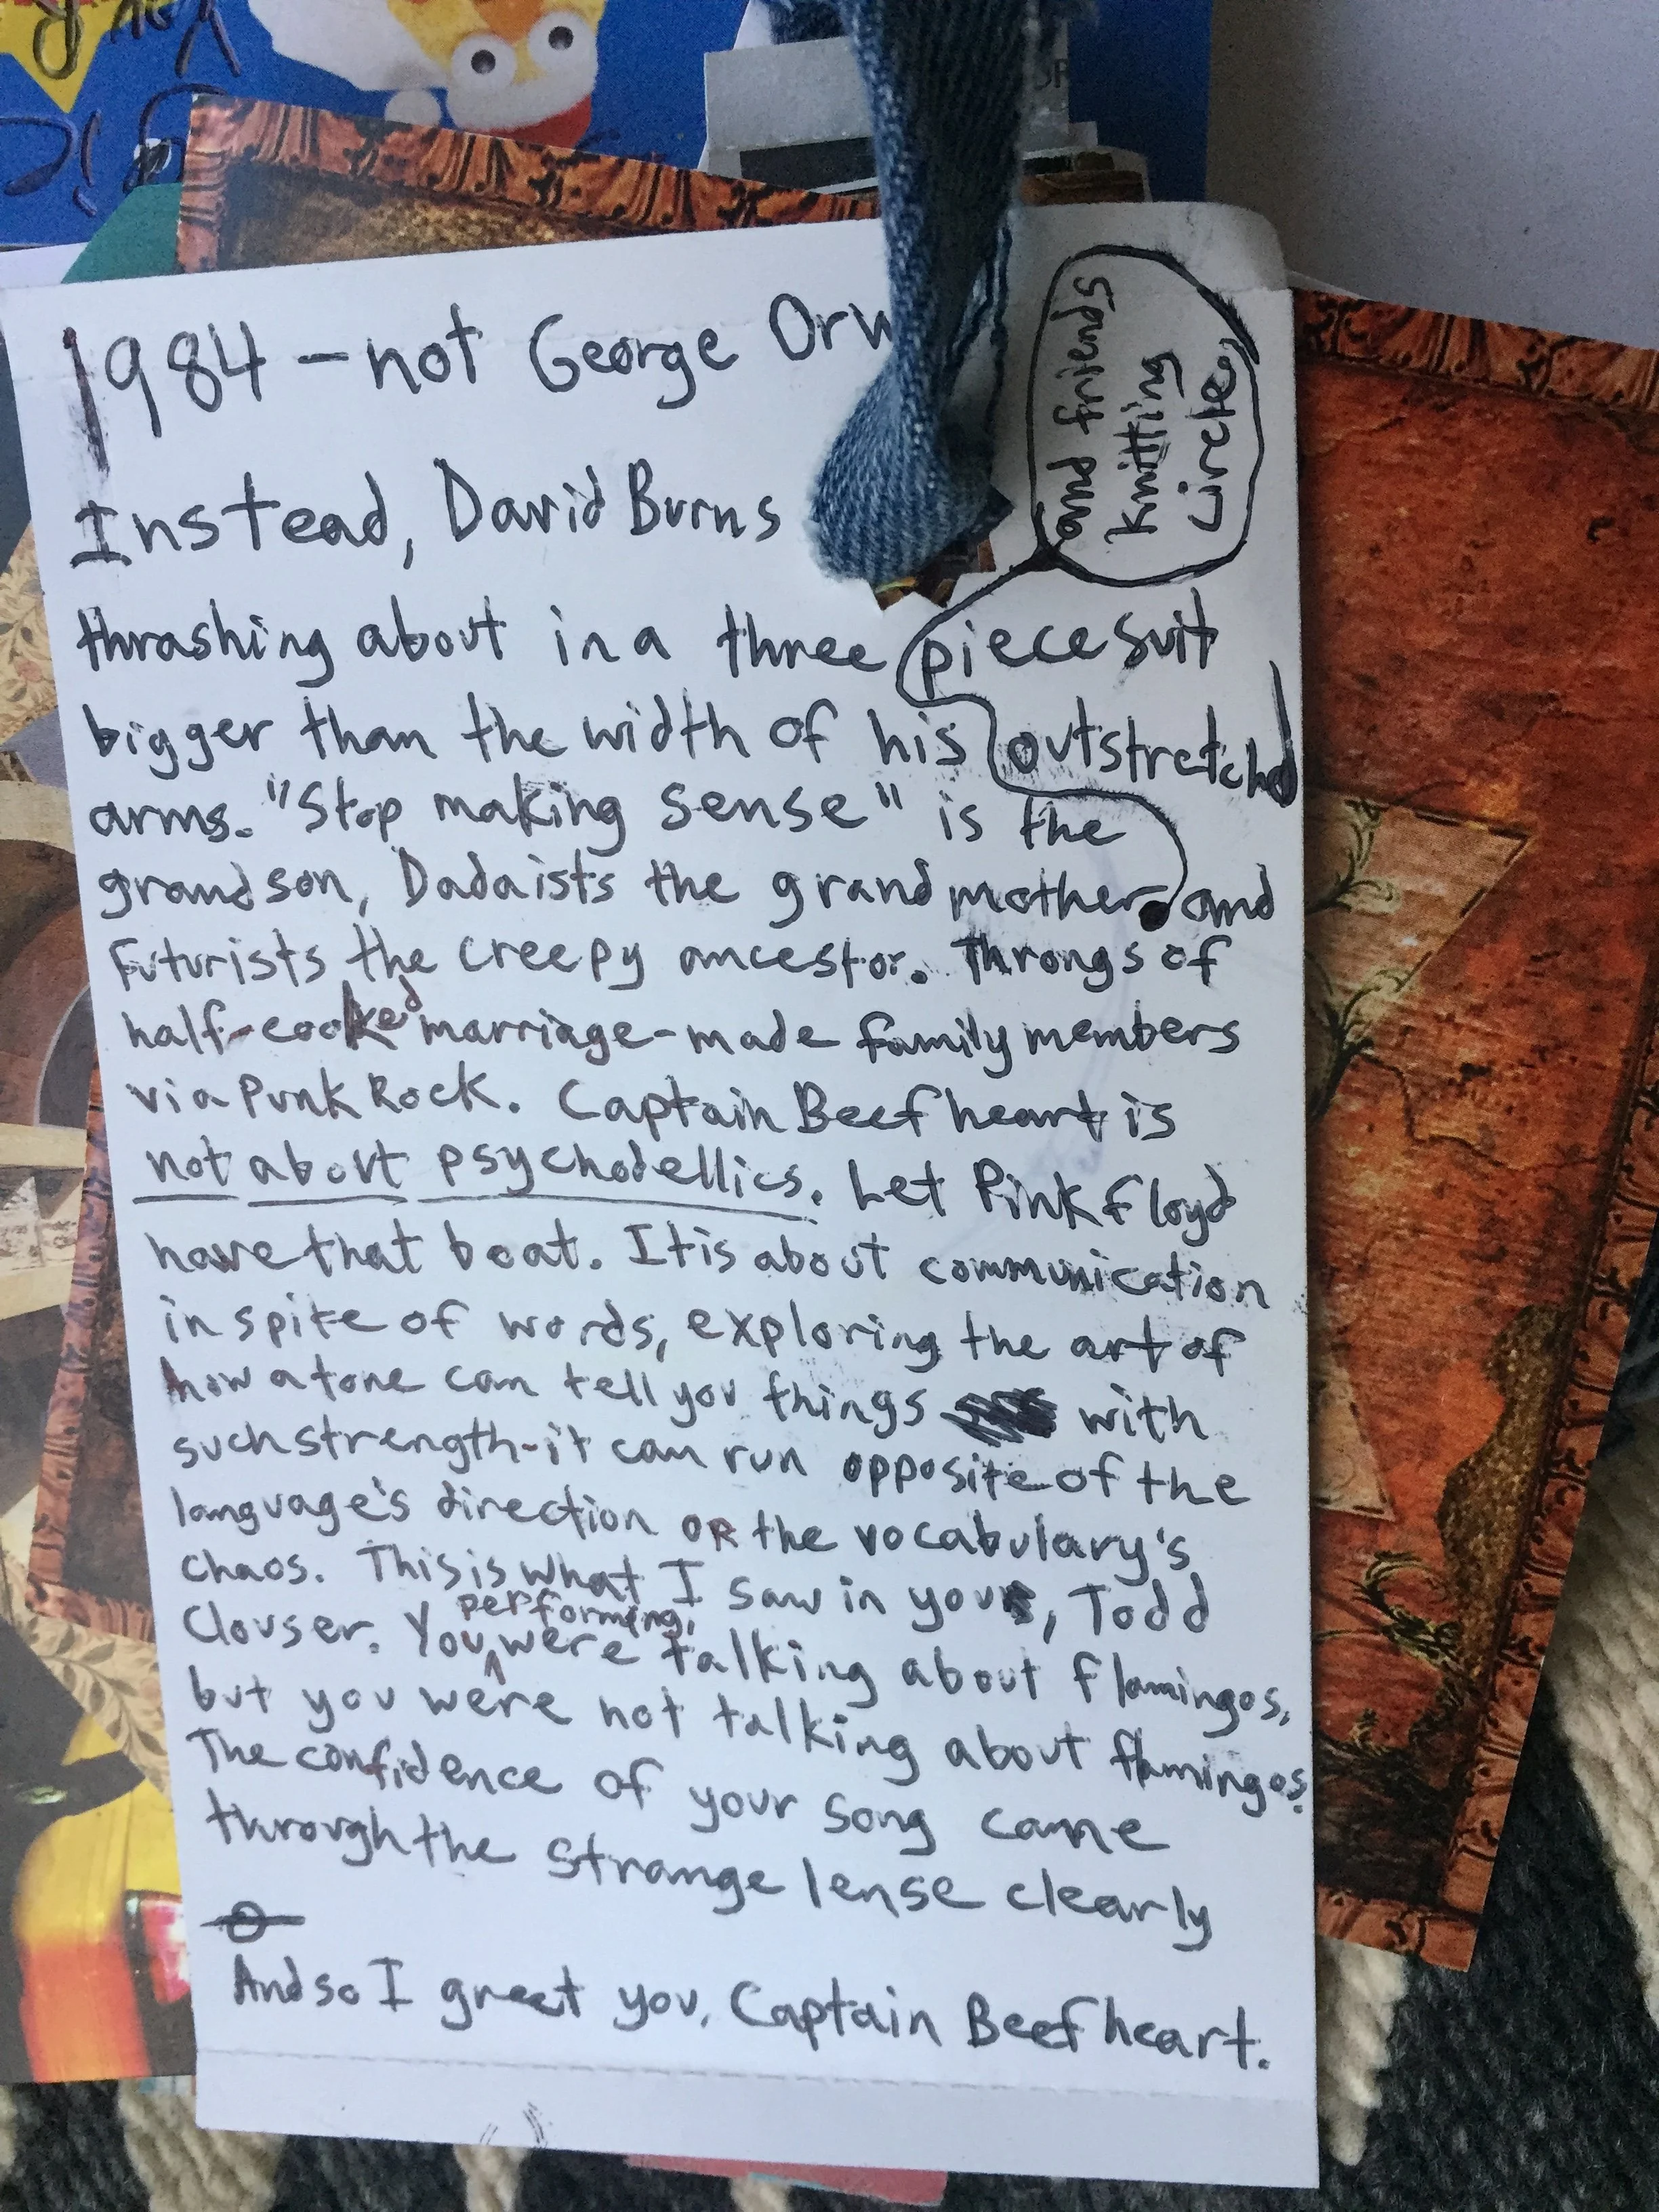 1984 – not George Orw
Instead, David Burns
and friends
knitting
circle,
thrashing about in a three piece suit
bigger than the width of his outstretched
arms. "Stop making sense" is the
grandson, Dadaists the grandmother and
Futurists the creepy ancestor. Throngs of
half-cooked marriage-made family members
via Punk Rock. Captain Beefheart is
not about psychodellics. Let Pink Floyd
have that boat. It is about communication
in spite of words, exploring the art of
how a tone can tell you things with
such strength-it can run opposite of the
language's direction OR the vocabulary's
chaos. This is what I saw in you, Todd
performing,
Clouser. You were talking about flamingos,
but you were not talking about flamingos.
The confidence of your song came
through the strange lense clearly
And so I greet you, Captain Beefheart.